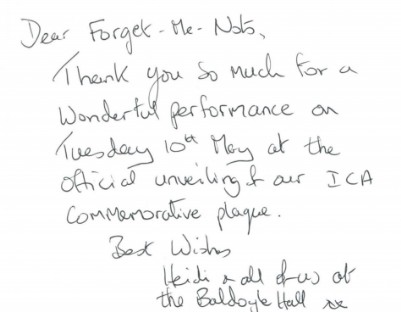 Dear Forget-Me-Nots,
Thank you so much for a
wonderful performance on
Tuesday 10th May at the
official unveiling of our ICA
commemorative plaque.
Best Wishes
Heidi & all of us at
the Baldoyle Hall xx